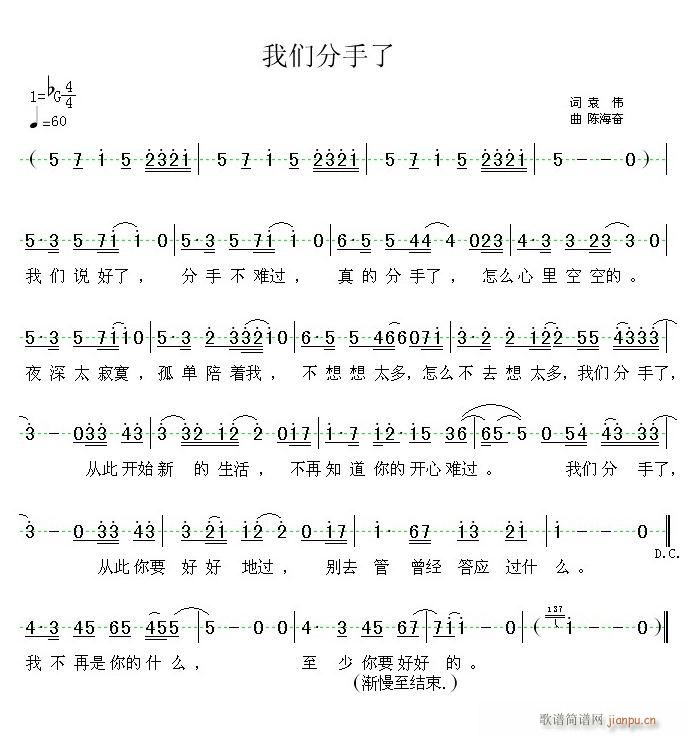 我们分手了
1=♭G 4/4
♩=60
词 袁 伟
曲 陈海奋
( 5 7 1 5 2321 | 5 7 1 5 2321 | 5 7 1 5 2321 | 5 - - 0 ) |
5· 3 5 71 1 0 | 5· 3 5 71 1 0 | 6· 5 5 44 4 023 | 4· 3 3 23 3 0 |
我们说好了， 分手不难过， 真的分手了， 怎么心里空空的。
5· 3 5 7110 | 5· 3 2 33210 | 6· 5 5 4660071 | 2· 2 2 122 55 433 |
夜深太寂寞，孤单陪着我， 不想想太多，怎么不去想太多，我们分手了，
3 - 033 43 | 3 332 12 2 017 | 1· 7 12 45 36 | 65· 5 0 54 43 33 |
从此开始新 的生活， 不再知道你的开心难过。 我们分手了，
3 - 033 43 | 3 21 12 2 0 17 | 1· 67 13 21 | 1 - - 0 ‖
从此你要 好好 地过， 别去管 曾经 答应 过什么。
D.C.
4· 3 45 65 455 | 5 - 0 0 | 4· 3 45 67 | 711 - 0 0 | ( 137 1 1 - 0 0 ) ‖
我不再是你的什么， 至少你要好好的。
(渐慢至结束.)
歌谱简谱网
jianpu.cn